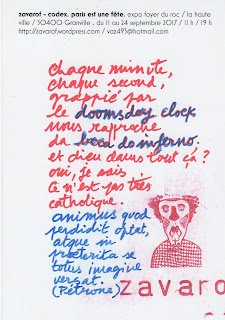 zavarof – codex. paris est une fête. expo foyer du roc / la haute
ville / 50400 Granville. du 11 au 24 septembre 2017 / 11 h / 19 h
http://zavarof.wordpress.com / vaz495@hotmail.com
chaque minute,
chaque second,
grappié par
le doomsday clock
nous rapproche
da boca do inferno.
et dieu dans tout ça ?
oui, je sais
ce n'est pas très
catholique.
animus quod
perdidit optat,
atque in
præterita se
totus imagine
versat.
(Pétrone)
zavaro